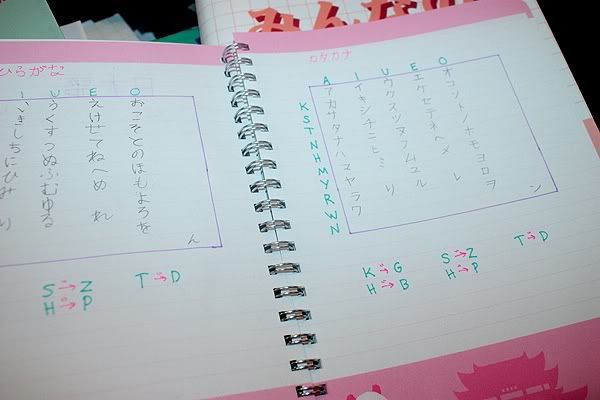 みんなの
ひらがな
I U E O
いきしちにひみ り
うくすつぬふむゆる
えけせてねへめ れ
おこそとのほもよろを
ん
S → Z T → D
H → P
カタカナ
A I U E O
K S T N H M Y R W N
アカサタナハマヤラワ
イキシチニヒミ リ
ウクスツヌフムユル
エケセテネヘメ レ
オコソトノホモヨロヲ
ン
K → G S → Z T → D
H → B H → P